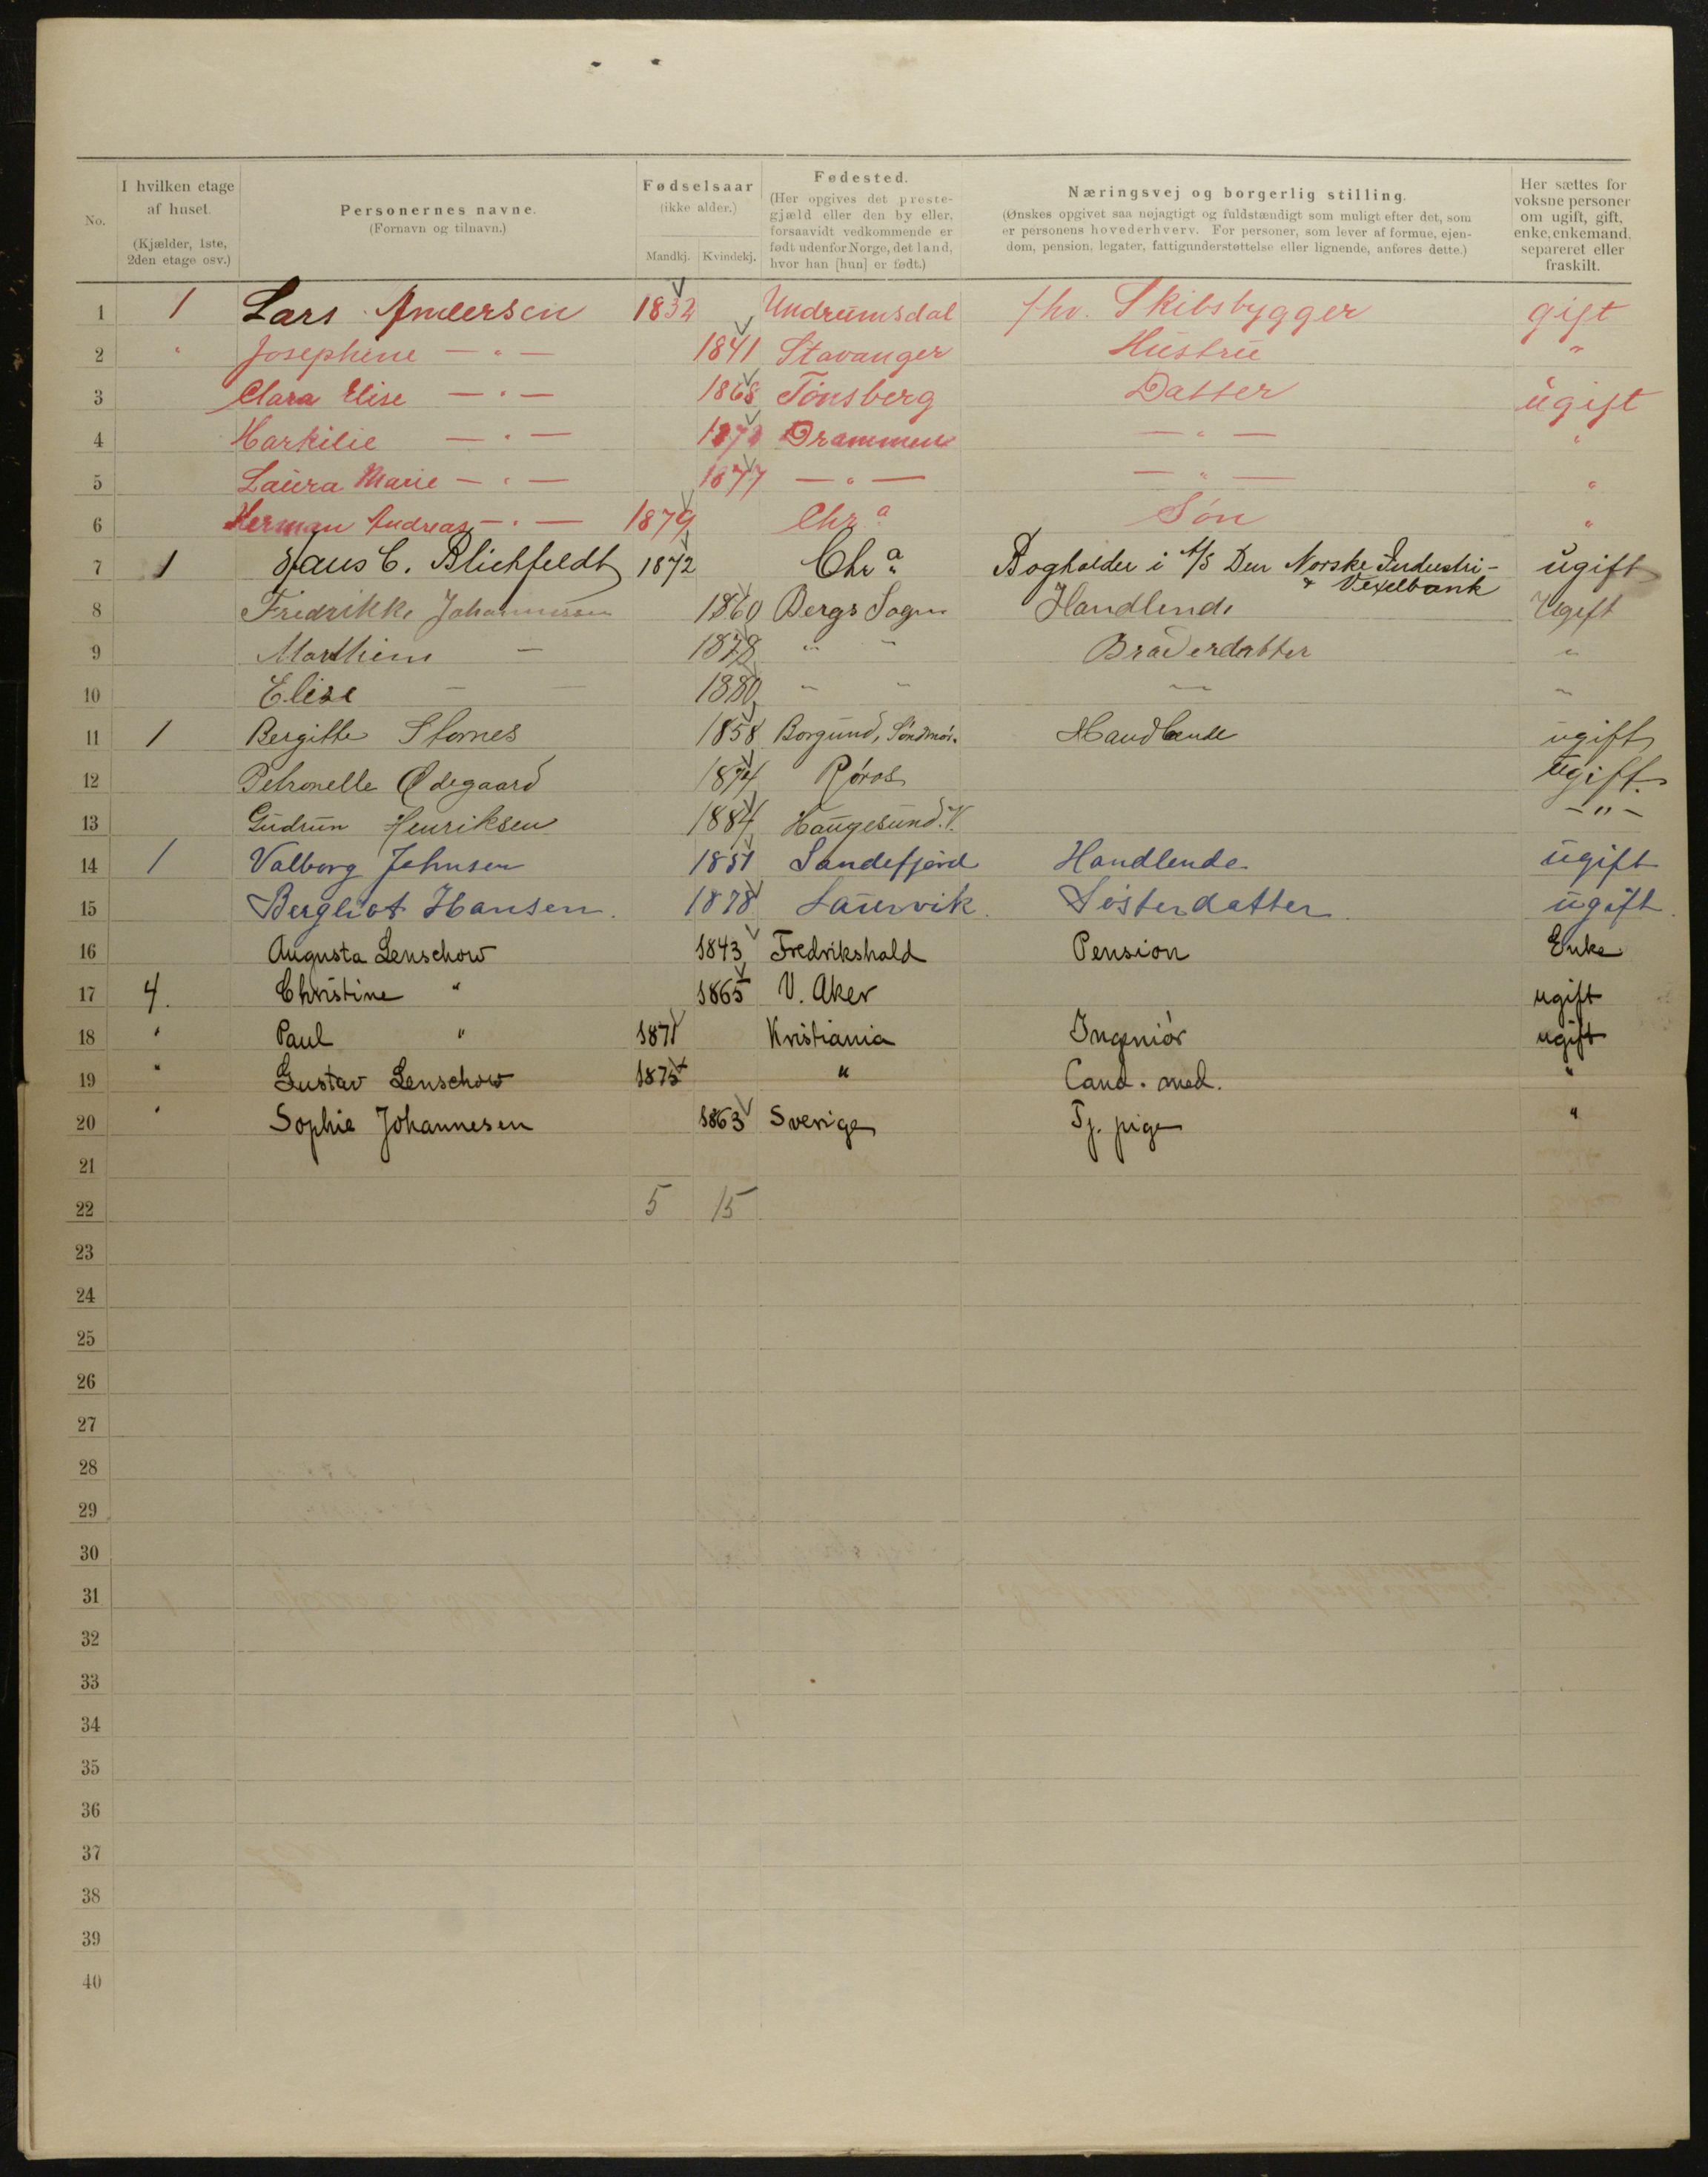 No.
I hvilken etage af huset. (Kjælder, 1ste, 2den etage osv.)
Personernes navne. (Fornavn og tilnavn.)
Fødselsaar (ikke alder.) Mandkj. Kvindekj.
Fødested. (Her opgives det prestegjæld eller den by eller, forsaavidt vedkommende er født udenfor Norge, det land, hvor han [hun] er født.)
Næringsvej og borgerlig stilling. (Ønskes opgivet saa nøjagtigt og fuldstændigt som muligt efter det, som er personens hovederhverv. For personer, som lever af formue, ejendom, pension, legater, fattigunderstøttelse eller lignende, anføres dette.)
Her sættes for voksne personer om ugift, gift, enke, enkemand, separeret eller fraskilt.
1 1 Lars Andersen 1832 Undrumsdal fhv. Skibsbygger gift
2 " Josephine — " — 1841 Stavanger Hustru "
3 Clara Elise — " — 1868 Tønsberg Datter ugift
4 — " — Drammen — " — "
5 Laura Marie — " — 1877 — " — — " — "
6 Herman Andreas — " — 1879 Chr.a Søn "
7 1 Hans C. Blichfeldt 1872 Chr.a Bogholder i A/S Den Norske Industri- & Vexelbank ugift
8 Fredrikke Johannessen 1860 Bergs Sogn Handlende Ugift
9 — 1878 " " Broderdatter "
10 Elise — — 1880 " " " "
11 1 Bergitte Stornes 1858 Borgund, Søndmør. Handlende ugift
12 Petronelle Ødegaard 1874 Røros Ugift.
13 Gudrun Henriksen 1884 Haugesund — " —
14 1 Valborg Johnsen 1851 Sandefjord Handlende ugift
15 Bergliot Hansen. 1878 Laurvik. Søsterdatter. ugift.
16 Augusta Lenschow 1843 Fredrikshald Pension Enke
17 4. Christine " 1865 V. Aker ugift
18 " Paul " 1871 Kristiania Ingeniør ugift
19 " Gustav Lenschow 1875 " Cand. med. "
20 " Sophie Johannesen 1863 Sverige Tj. pige "
21
22 5 15
23
24
25
26
27
28
29
30
31
32
33
34
35
36
37
38
39
40